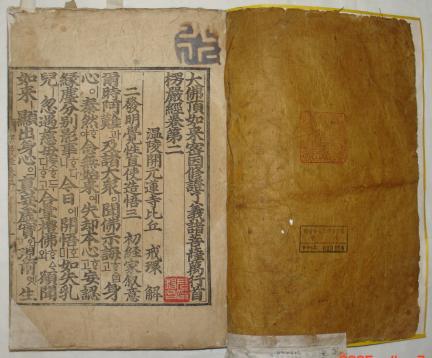 大佛頂如來密因修證了義諸菩薩萬行首
楞嚴經卷第二
溫陵開元蓮寺比丘 戒環 解
二發明覺性直使造悟三 初經家叙意
爾時阿難과及諸大衆이聞佛示誨ᄒᆞ고身
心이泰然ᄒᆞ야念無始來예失却本心ᄒᆞ고妄認
緣塵分別影事ᄒᆞ다니今日에開悟호미如失乳
兒ㅣ忽遇慈母ᄒᆞ야合掌禮佛ᄒᆞ고願聞
如來ㅣ顯出身心의眞妄虛實와現前에生